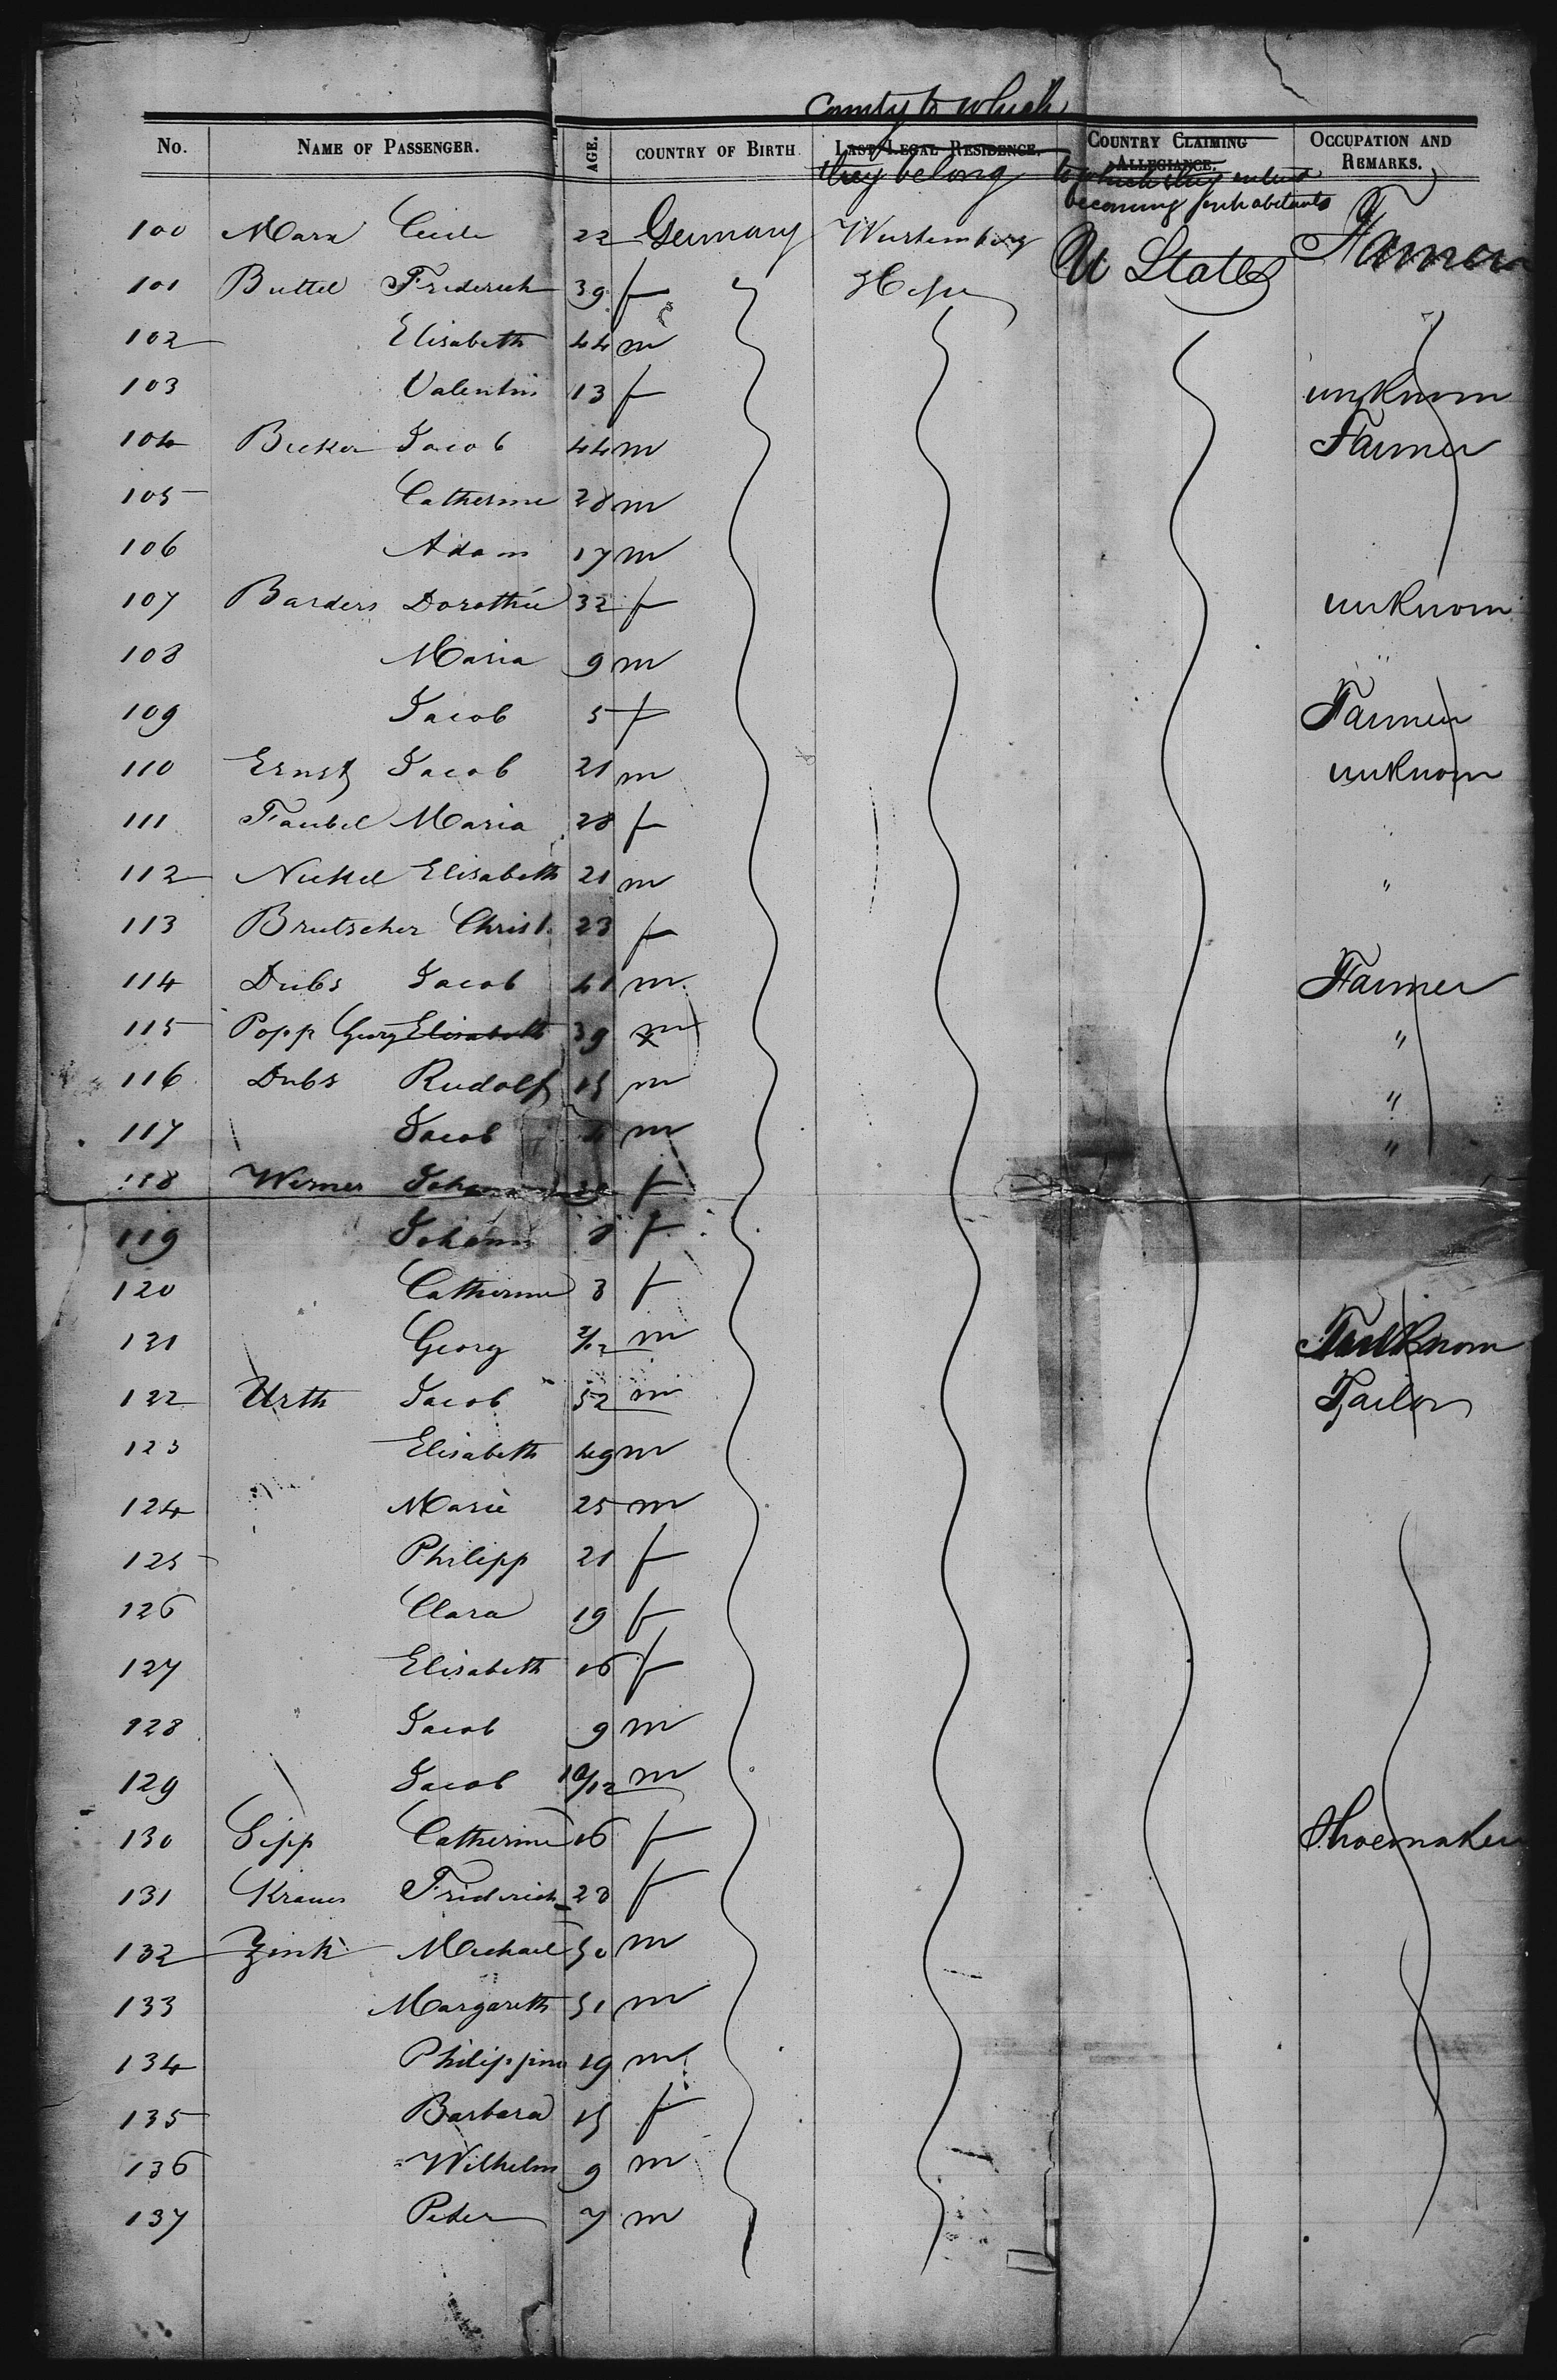 County to which
No. NAME OF PASSENGER. AGE. COUNTRY OF BIRTH LAST LEGAL RESIDENCE. COUNTRY CLAIMING ALLEGIANCE. OCCUPATION AND REMARKS.
they belong to which they intend
becoming inhabitants
100 22 Germany Wurtemberg U States Farmer
101 Buttel Friderich 39 f Hesse
102 Elisabeth 44 m
103 Valentin 13 f unknown
104 Becker Jacob 44 m Farmer
105 Catherine 28 m
106 Adam 17 m
107 Barders Dorothie 32 f unknown
108 Maria 9 m "
109 Jacob 5 f Farmer
110 Ernst Jacob 21 m unknown
111 Faubel Maria 28 f "
112 Nickel Elisabeth 21 m "
113 Brutscher Christ. 23 f
114 Dubs Jacob 41 m Farmer
115 Popp Georg Elisabeth 39 m "
116 Dubs Rudolf 15 m "
117 Jacob m "
118 Werner f
119 Johann 8 f
120 Catherine 3 f
121 Georg 2/12 m unknown
122 Urth Jacob 52 m Tailor
123 Elisabeth 49 m
124 Marie 25 m
125 Philipp 21 f
126 Clara 19 f
127 Elisabeth 16 f
128 Jacob 9 m
129 Jacob 10/12 m
130 Sipp Catherine 16 f Shoemaker
131 Kraus Friderich 28 f
132 Zink Michael 50 m
133 Margareth 51 m
134 Philippine 19 m
135 Barbara 15 f
136 Wilhelm 9 m
137 Peter 7 m